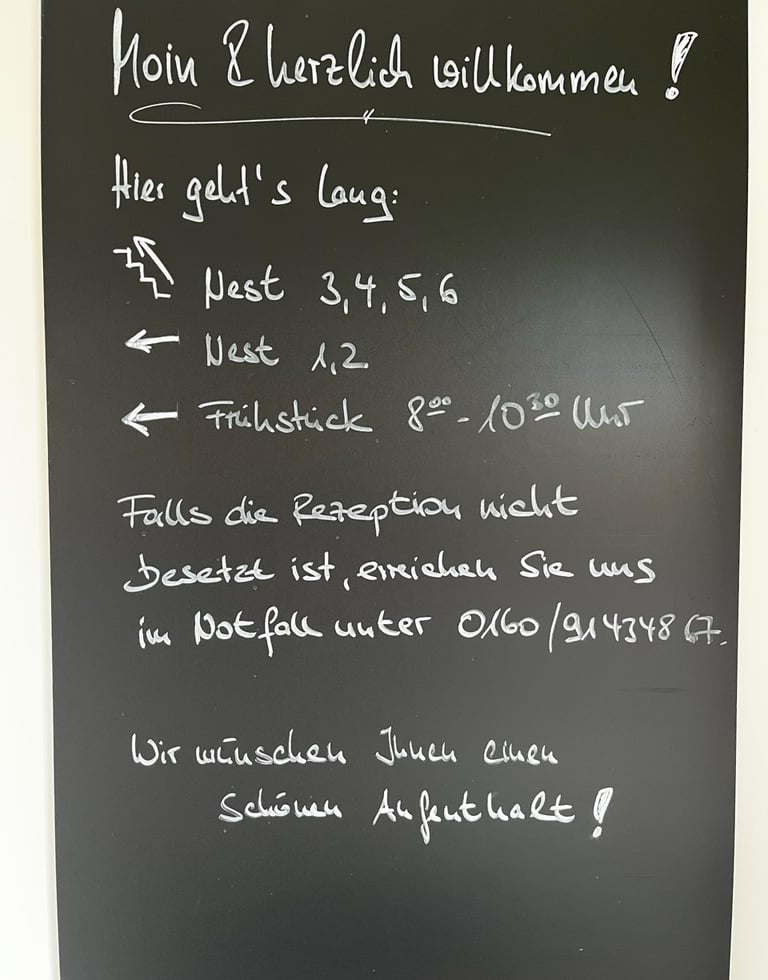 Moin & herzlich willkommen!
Hier geht's lang:
Nest 3,4,5,6
Nest 1,2
Frühstück 8⁰⁰ - 10³⁰ Uhr
Falls die Rezeption nicht
besetzt ist, erreichen Sie uns
im Notfall unter 0160/91434867.
Wir wünschen Ihnen einen
schönen Aufenthalt!